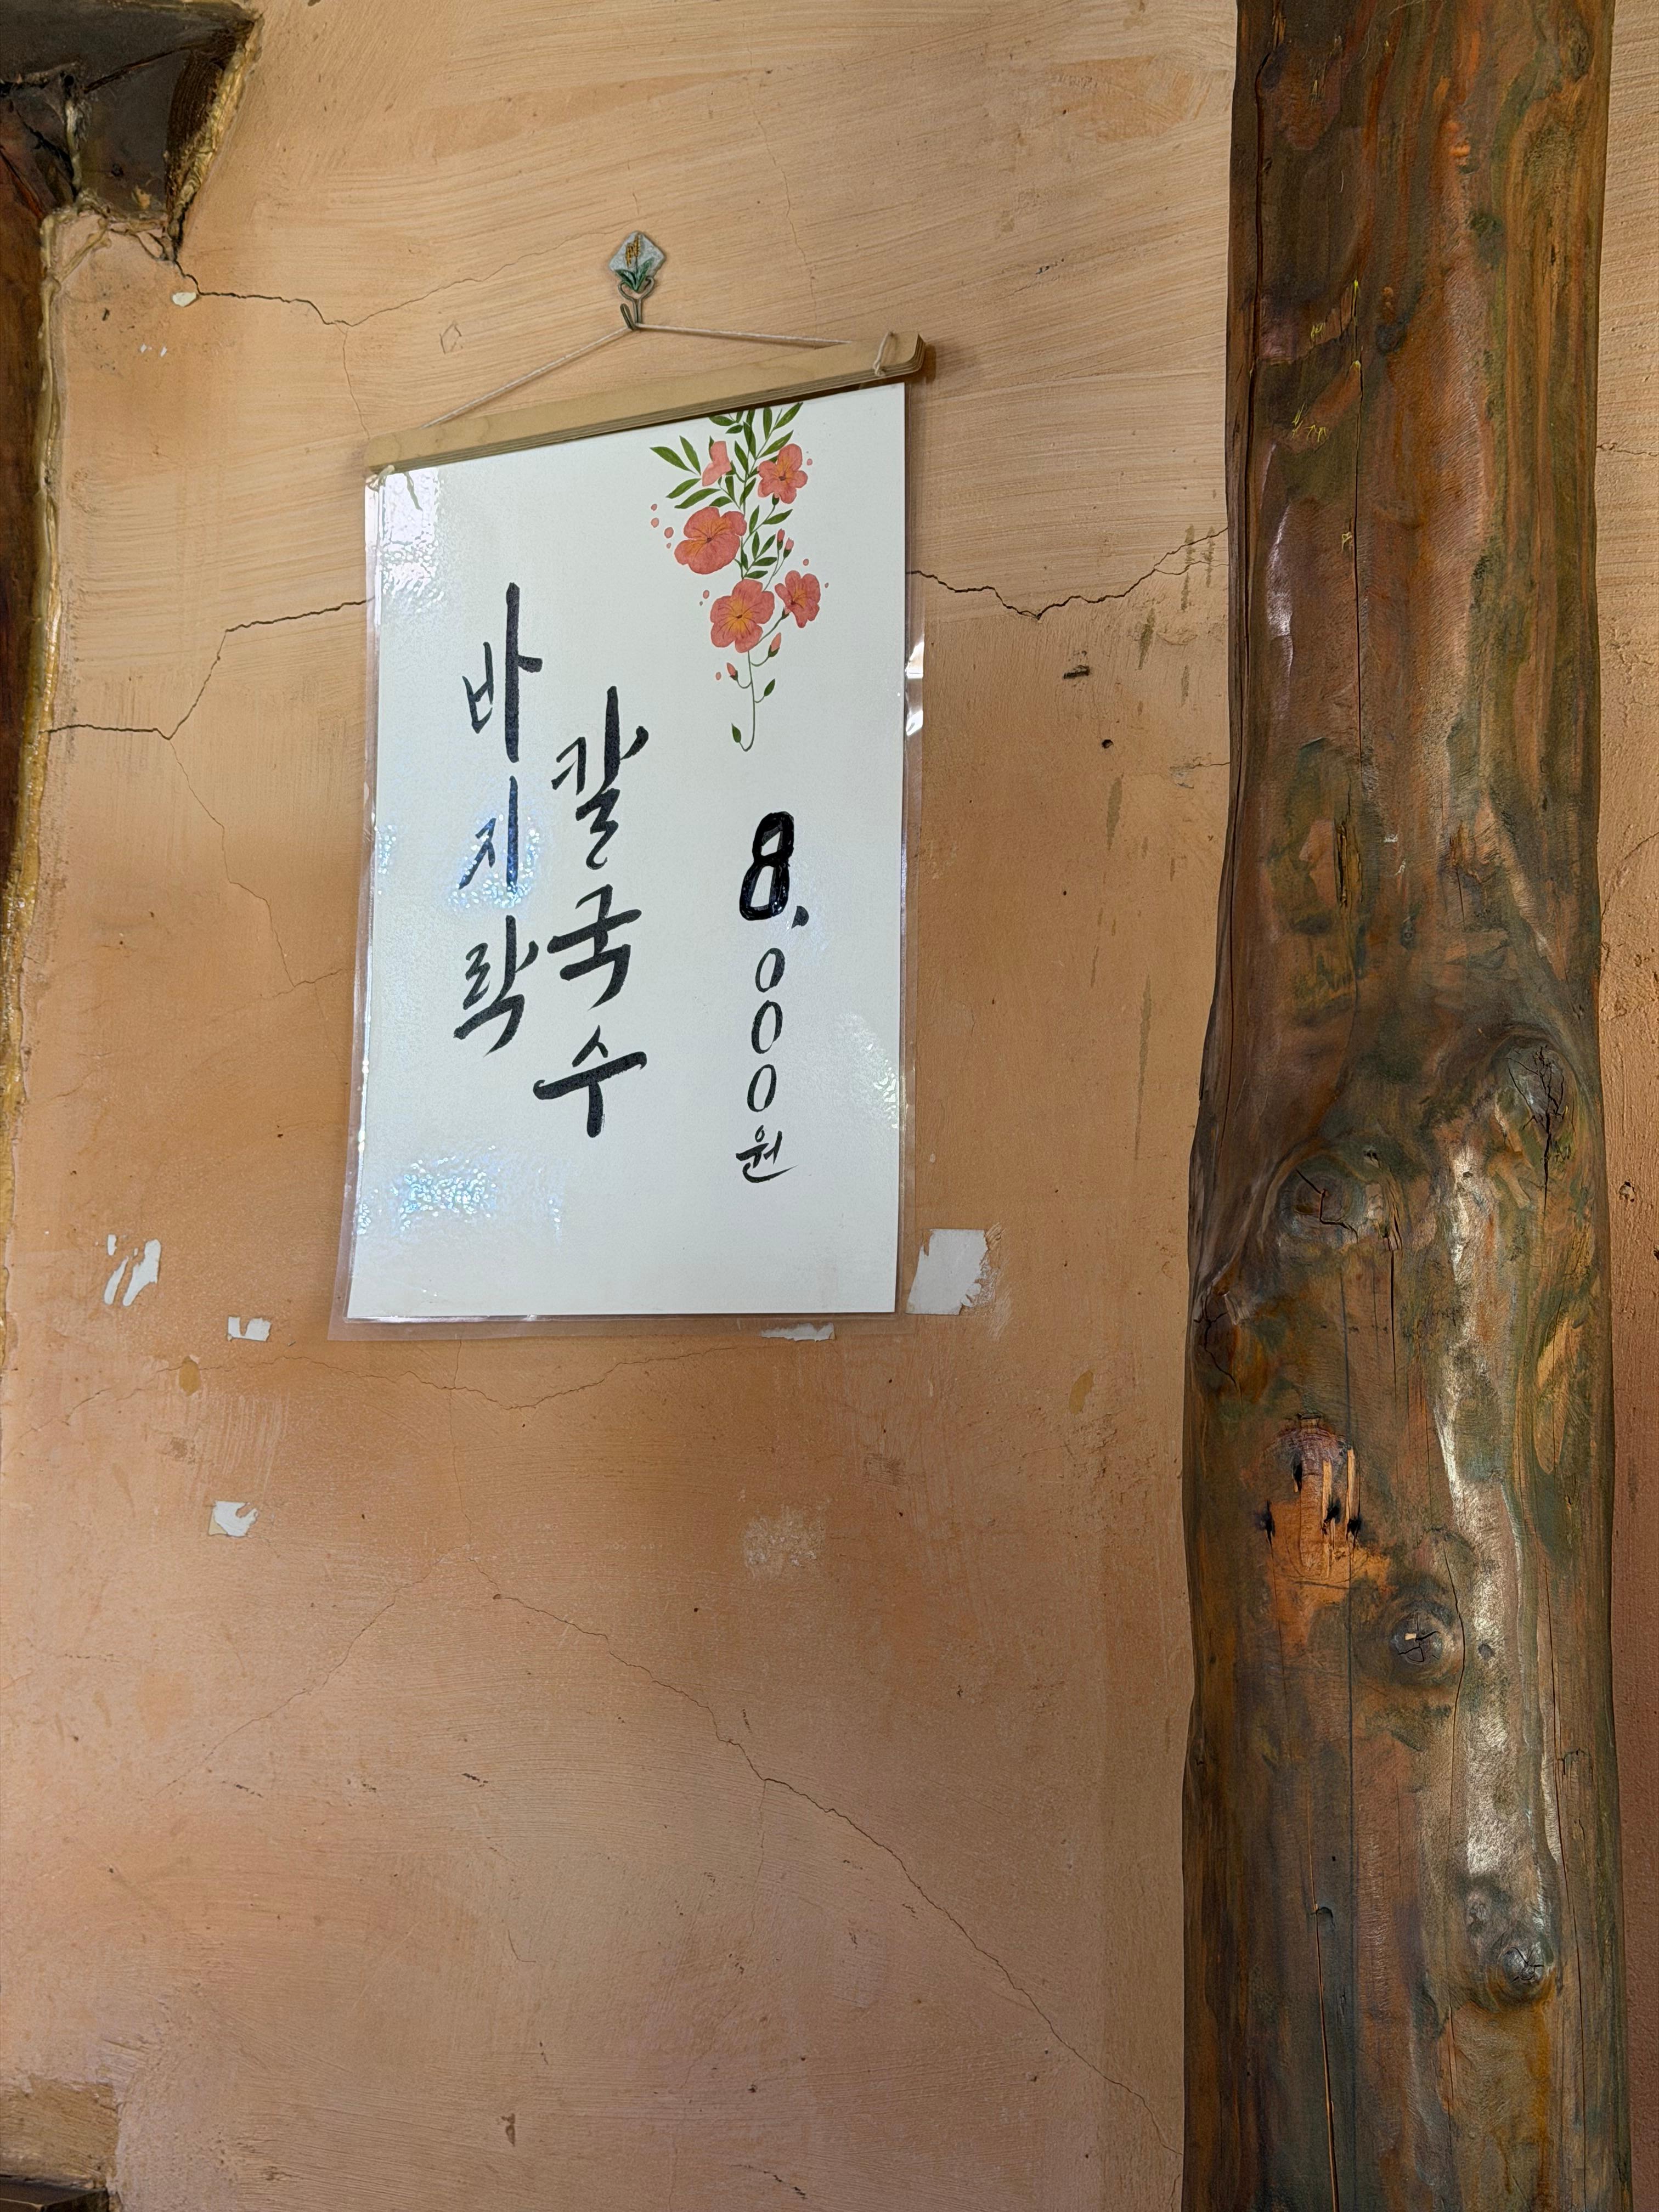 바지락
칼국수
8,000원